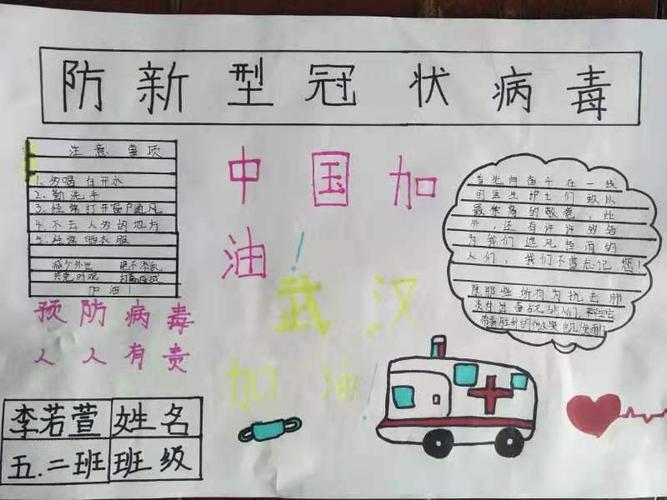 防新型冠状病毒
注意事项
1、多喝白开水
2、勤洗手
3、经常打开窗户通风
4、不去人多的地方
5、经常晒衣服
减少外出 绝不添乱
共克时艰
加油！
中国加
油！
武汉
加油！
预防病毒
人人有责
李若萱 姓名
五.二班 班级
首先向奋斗在一线
的医生护士们致以
最崇高的敬意，此
外，还有许许多多
为我们
人们，我们不会忘记您！